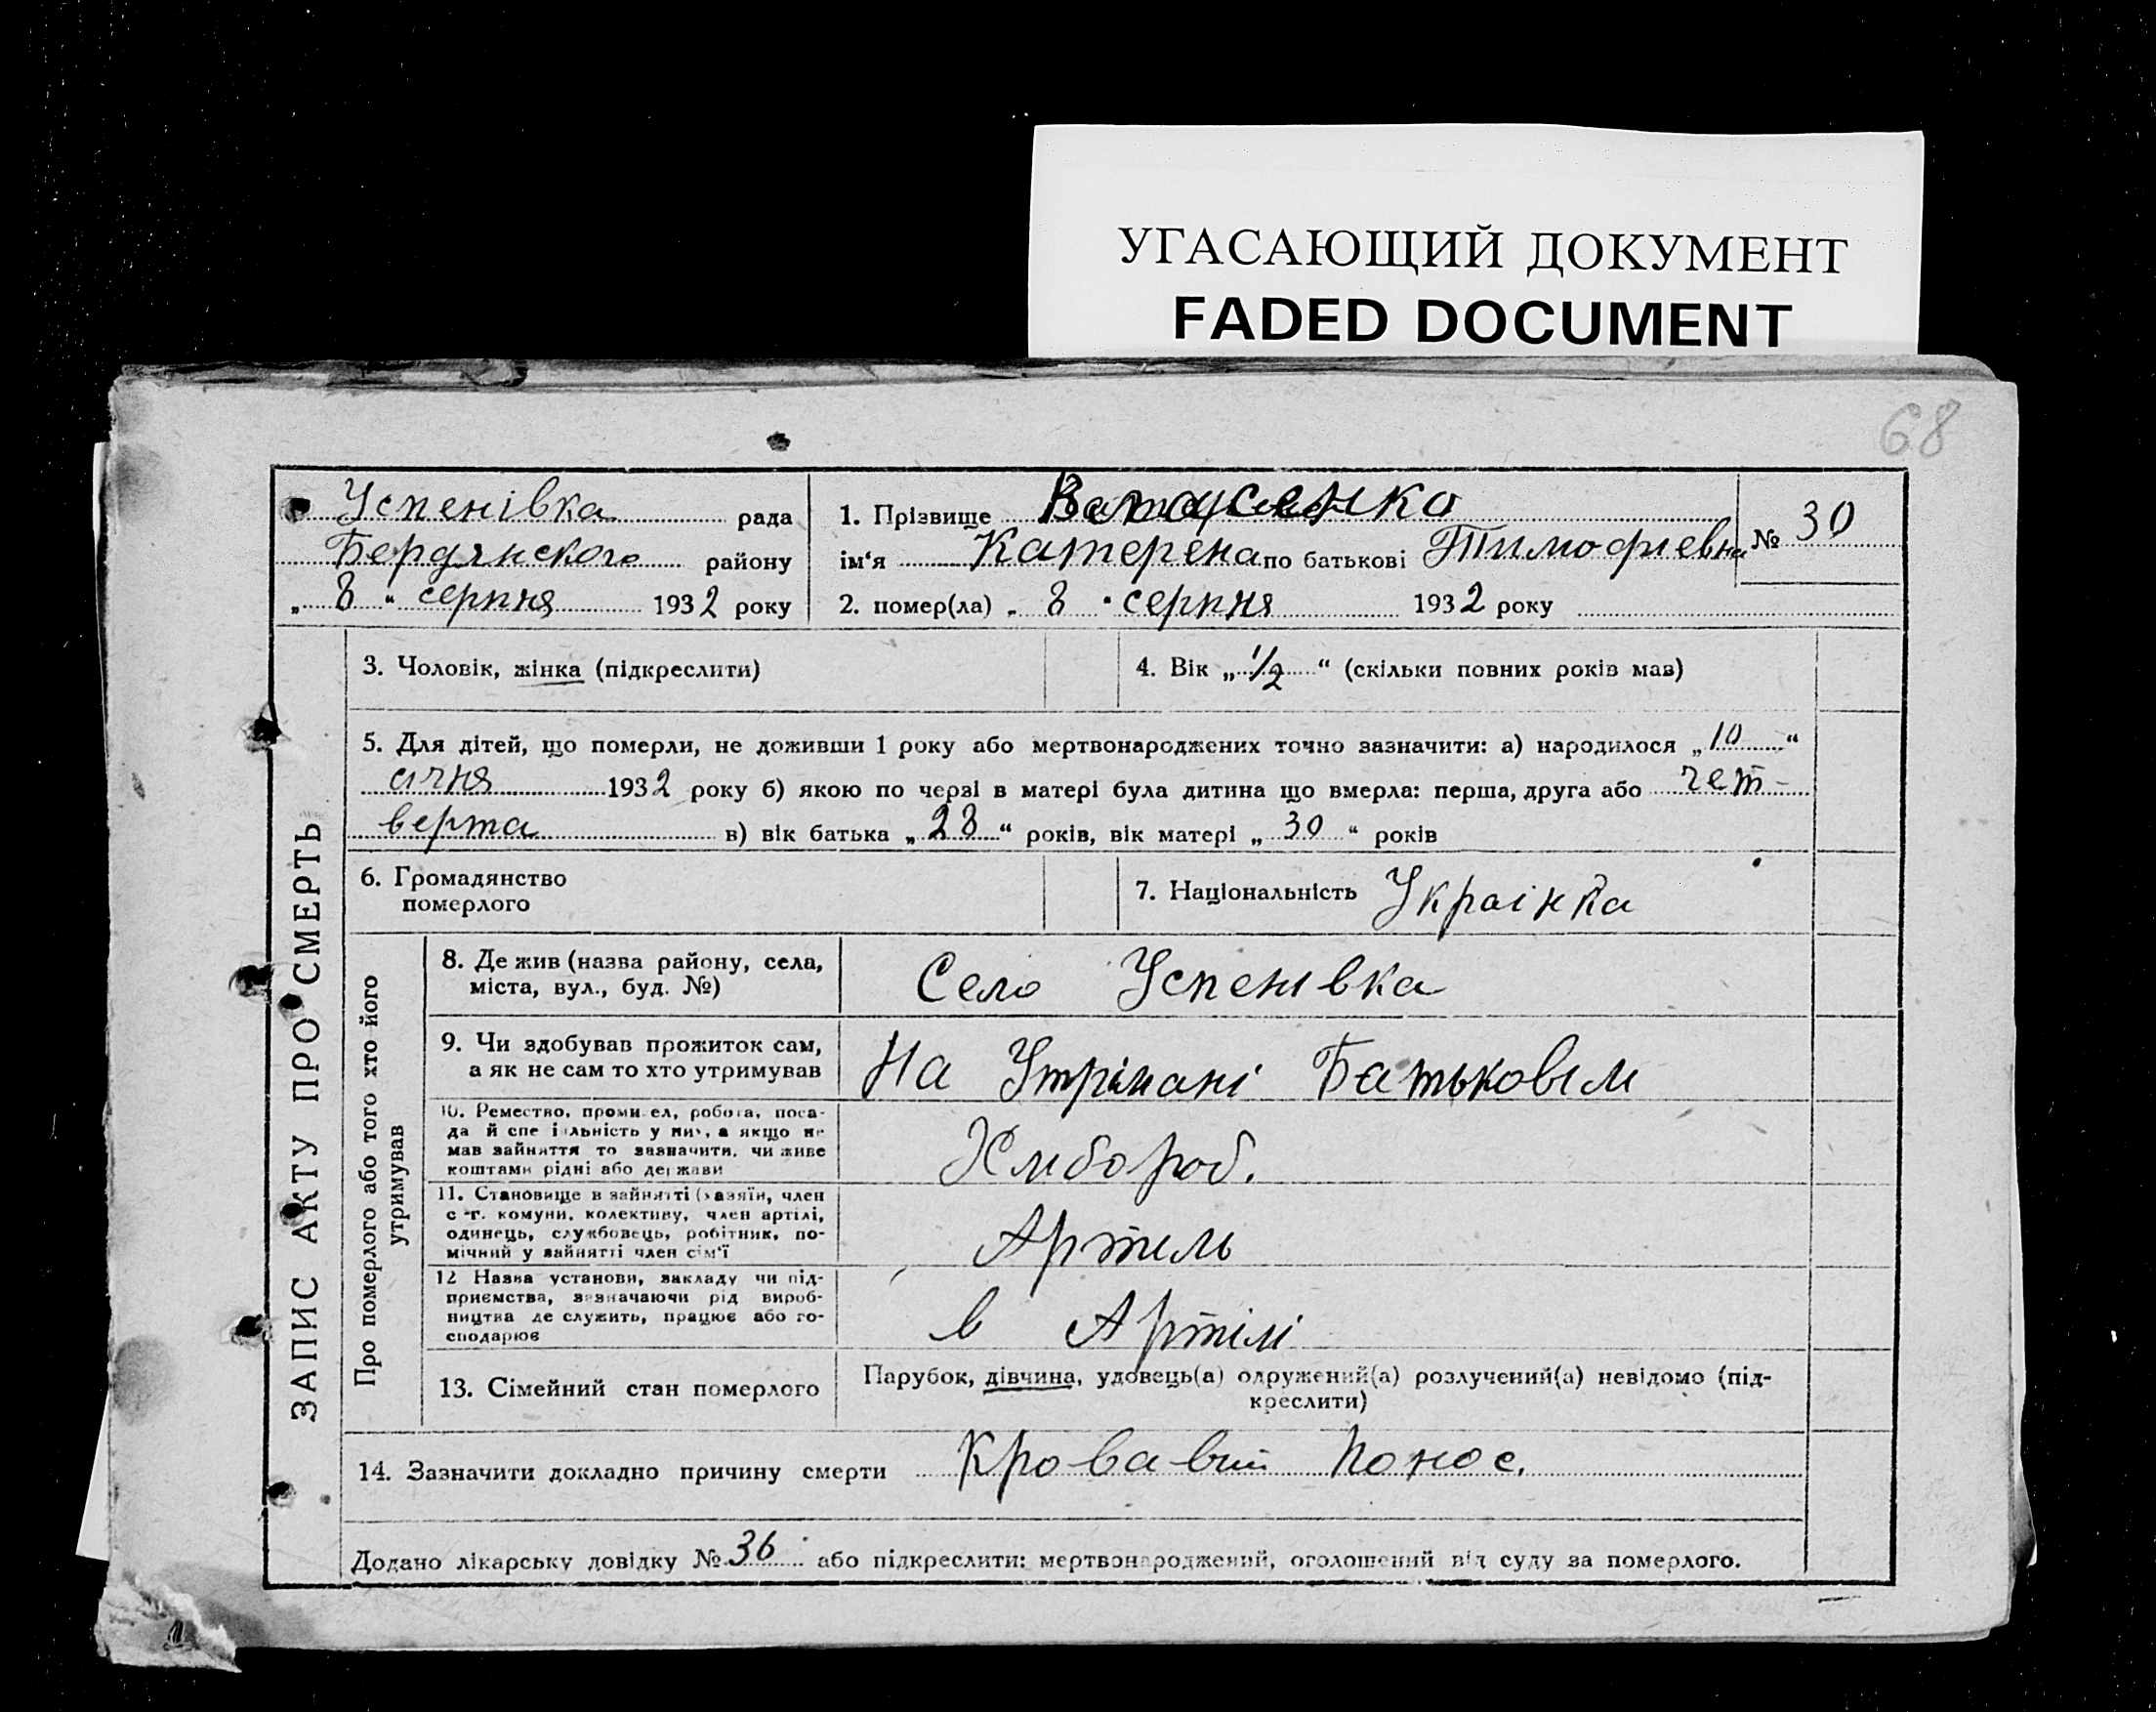 УГАСАЮЩИЙ ДОКУМЕНТ
FADED DOCUMENT
68
Успенівка рада
Бердянського району
„ 8 “ серпня 1932 року
1. Прізвище
ім‘я Катерена по батькові Тимофіевна
№ 30
2. помер(ла) „ 8 “ серпня 1932 року
ЗАПИС АКТУ ПРО СМЕРТЬ
3. Чоловік, жінка (підкреслити)
4. Вік „ 1/2 “ (скільки повних років мав)
5. Для дітей, що померли, не доживши 1 року або мертвонароджених точно зазначити: а) народилося „ 10 “
січня 1932 року б) якою по черзі в матері була дитина що вмерла: перша, друга або чет-
верта в) вік батька „ 28 “ років, вік матері „ 30 “ років
6. Громадянство
померлого
7. Національність Украінка
Про померлого або того хто його
утримував
8. Де жив (назва району, села,
міста, вул., буд. №)
Село Успенівка
9. Чи здобував прожиток сам,
а як не сам то хто утримував
На Утрімані Батьковім
10. Ремество, промисел, робота, поса-
да й спеціальність у них, а якщо не
мав зайняття то зазначити, чи живе
коштами рідні або держави
Хлібороб.
11. Становище в зайнятті (хазяїн, член
с-г. комуни, колективу, член артілі,
одинець, службовець, робітник, по-
мічний у зайнятті член сім'ї
Артиль
12 Назва установи, закладу чи під-
приємства, зазначаючи рід вироб-
ництва де служить, працює або го-
сподарює
в Артілі
13. Сімейний стан померлого
Парубок, дівчина, удовець(а) одружений(а) розлучений(а) невідомо (під-
креслити)
14. Зазначити докладно причину смерти Кровавий Понос.
Додано лікарську довідку № 36 або підкреслити: мертвонароджений, оголошений від суду за померлого.